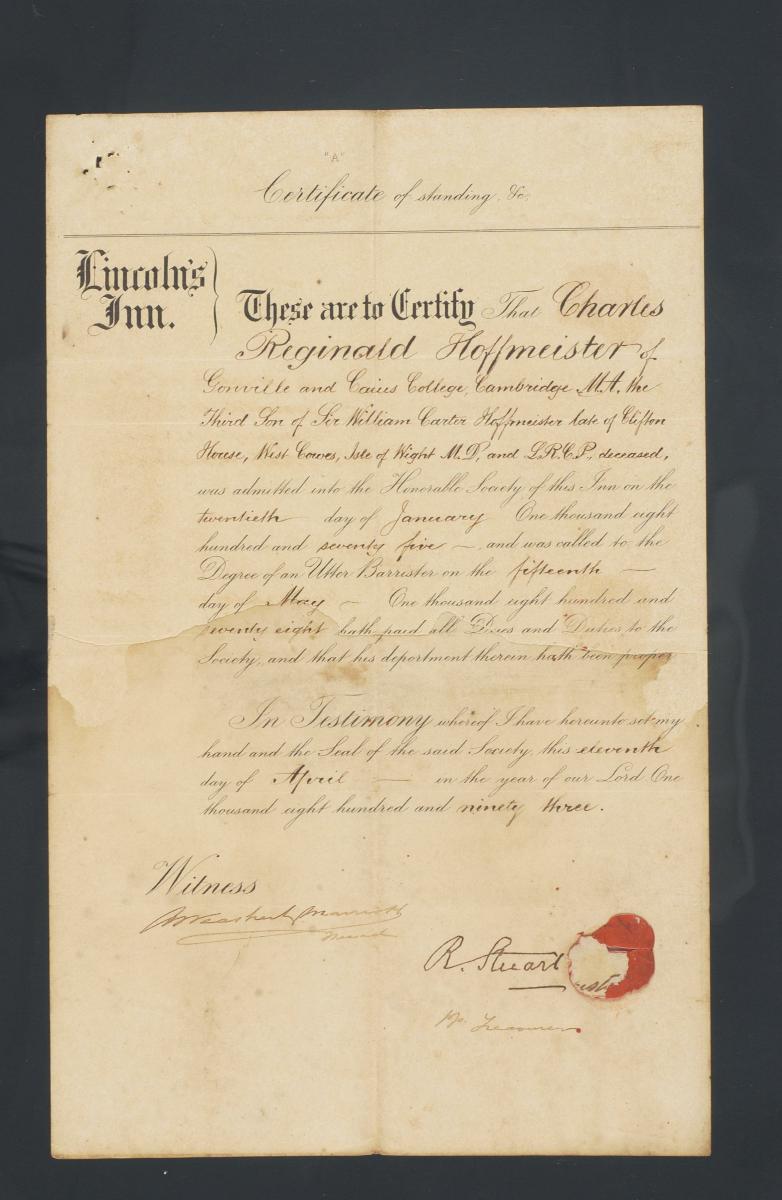 "A"
Certificate of standing, &c.
Lincoln's
Inn.
These are to Certify That Charles
Reginald Hoffmeister of
Gonville and Caius College, Cambridge M.A. the
Third Son of Sir William Carter Hoffmeister late of Clifton
House, West Cowes, Isle of Wight M.D. and L.R.C.P., deceased,
was admitted into the Honorable Society of this Inn on the
twentieth day of January One thousand eight
hundred and seventy five — and was called to the
Degree of an Utter Barrister on the fifteenth —
day of May — One thousand eight hundred and
seventy eight hath paid all Dues and Duties to the
Society, and that his deportment therein hath been proper
In Testimony whereof I have hereunto set my
hand and the Seal of the said Society this eleventh
day of April — in the year of our Lord One
thousand eight hundred and ninety three.
Witness
R. Stuart